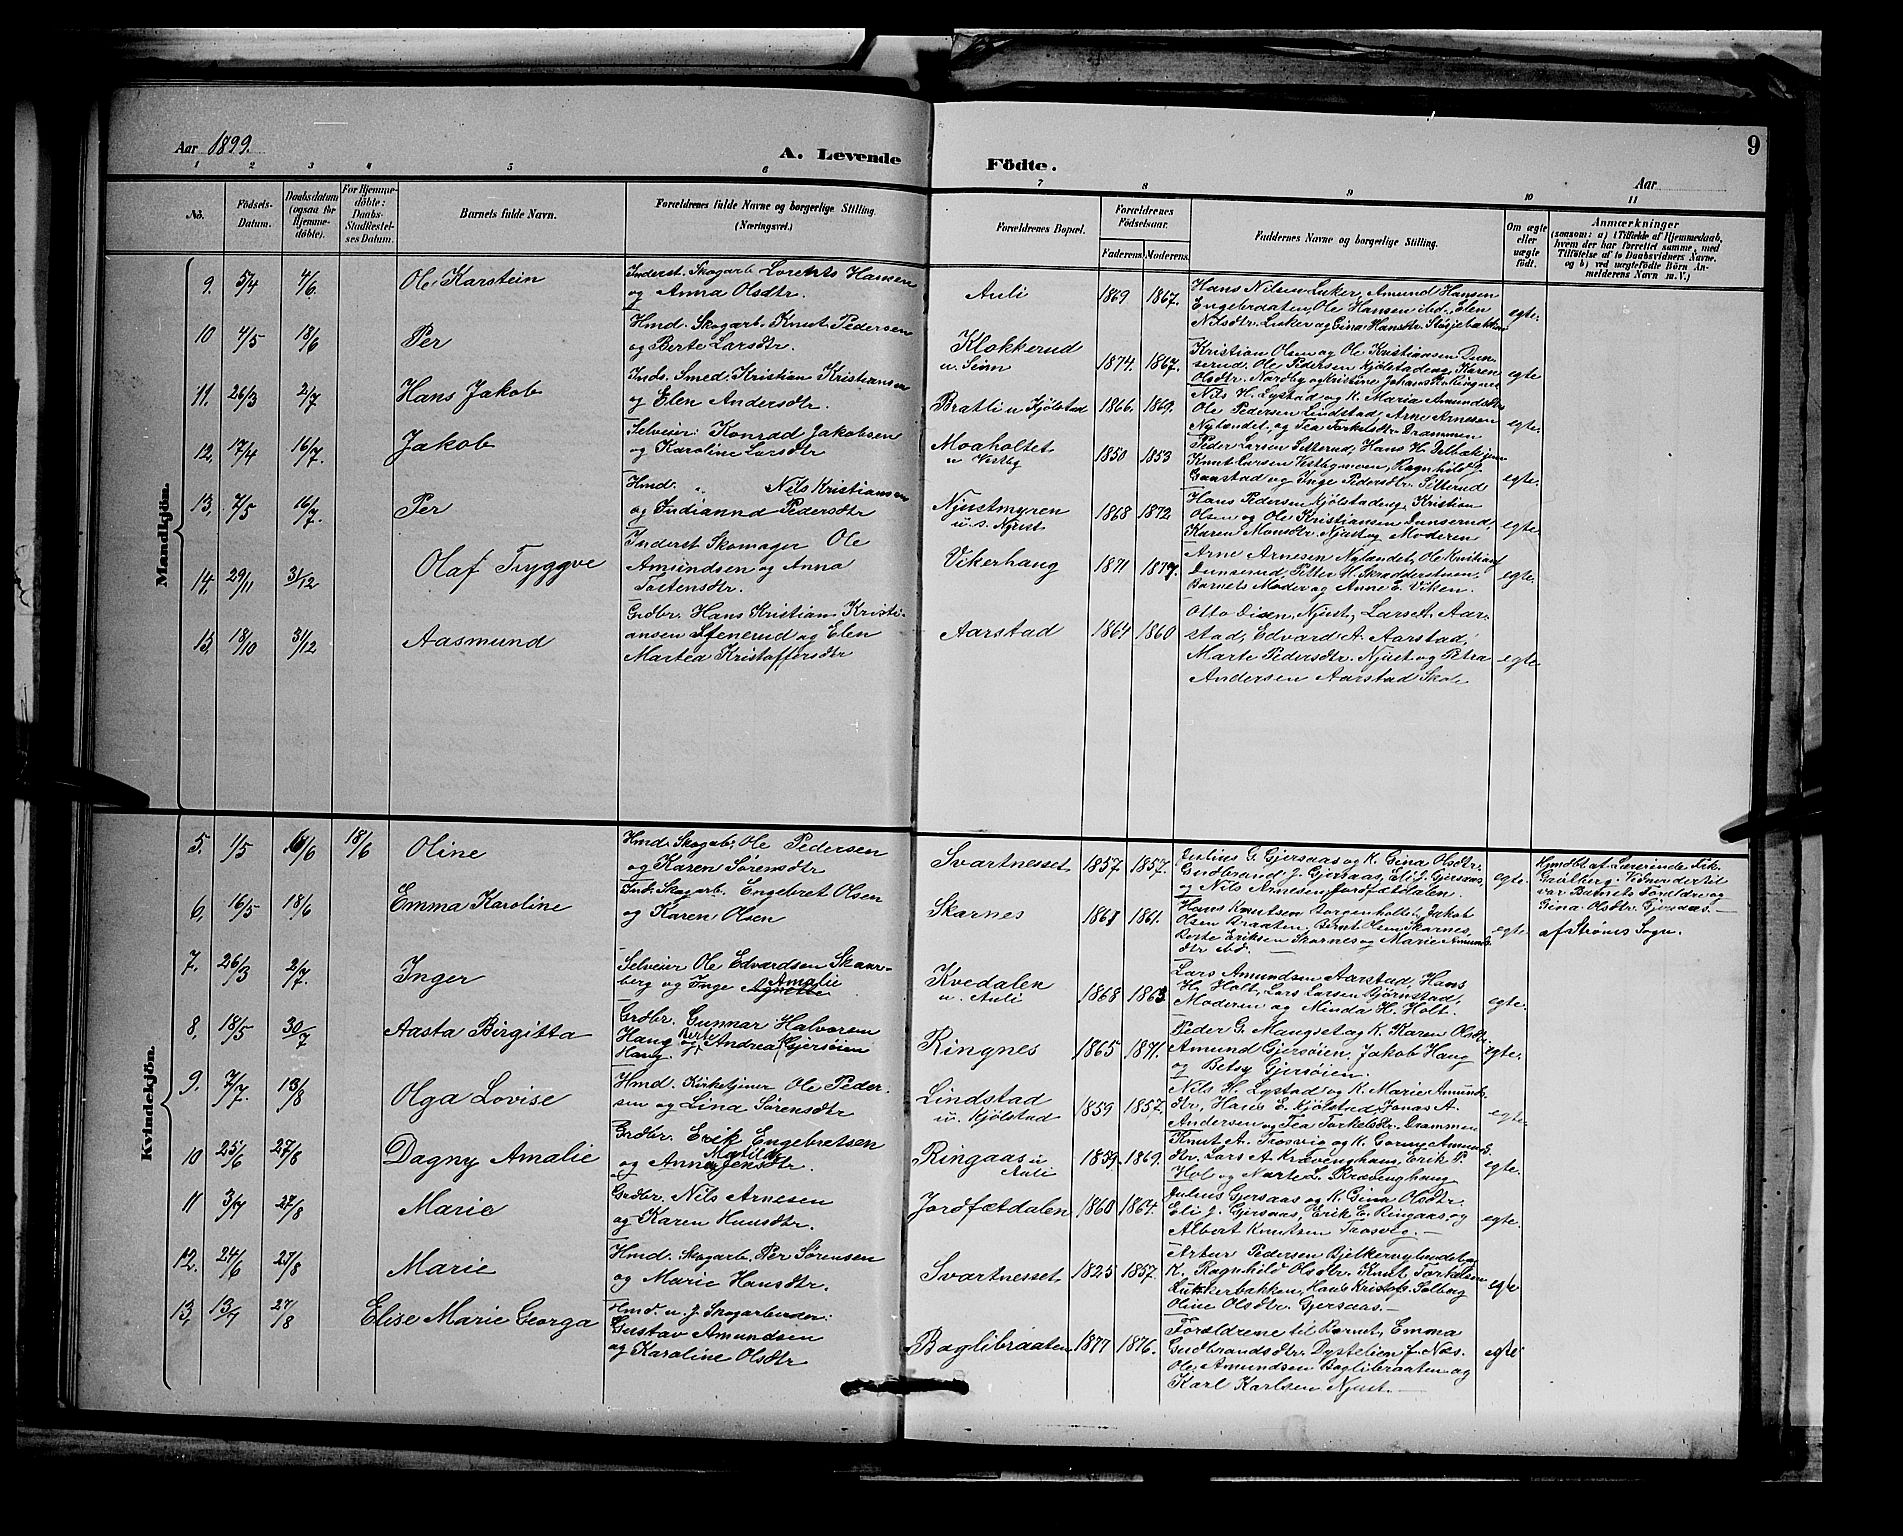 Aar 1899.
A. Levende
Födte.
Aar
9
1 2 3 4 5 6 7 8 9 10 11
No.
Födsels-
Datum.
Daabsdatum
(ogsaa for
Hjemme-
döbte).
For Hjemme-
döbte:
Daabs-
Stadfæstel-
ses Datum.
Barnets fulde Navn.
Forældrenes fulde Navne og borgerlige Stilling.
(Næringsvei.)
Forældrenes Bopæl.
Forældrenes
Födselsaar.
Faderens. Moderens.
Faddernes Navne og borgerlige Stilling.
Om ægte
eller
uægte
födt.
Anmærkninger
(saasom: a) i Tilfælde af Hjemmedaab,
hvem der har forrettet samme, med
Tilföielse af to Daabsvidners Navne,
og b) ved uægtefödte Börn An-
melderens Navn m. V.)
Mandkjön.
9. 5/4 4/6 Ole Karstein
Inderst. Skogarb. Lorents Hansen
og Anna Olsdtr.
Auli 1869 1867.
Hans Nilsen Luker, Amund Hansen
Engebraaten, Ole Hansen ibd., Elen
Nilsdtr. Luker og Gina Hansdtr.
egte.
10 4/5 18/6 Per
Hmd. Skogarb. Knut Pedersen
og Berte Larsdtr.
Klokkerud
u. Seim 1874. 1867.
Kristian Olsen og Ole Kristiansen Dun-
serud, Ole Pedersen Kjölstadeng, Karen
Olsdtr. Nordby og Kristine
egte
11. 26/3 2/7 Hans Jakob
Inds. Smed. Kristian Kristiansen
og Elen Andersdtr.
Bratli u Kjölstad 1866. 1869.
Nils H. Lystad og K. Maria Amundsdtr
Ole Pedersen Lindstad, Arne Arnesen
Nylandet, og Tea Torkelsdtr. Drammen
egte.
12. 17/4 16/7 Jakob
Selveier: Konrad Jakobsen
og Karoline Larsdtr
Moaholtet
u Vestby 1850 1853
Peder Larsen Sitterud, Hans H.
Knut Larsen Vestbymoen, Ragnhild G.
Gaastad og Inge Pedersdtr. Sitterud
egte.
13. 7/5 16/7 Per
Hmd. „ Nils Kristiansen
og Indiannd Pedersdtr
Njustmyren
u. s. Njust 1868 1872
Hans Pedersen Kjölstadeng, Kristian
Olsen og Ole Kristiansen Dunserud,
Karen Monsdtr. Njust og Moderen
egte.
14. 29/11 31/12 Olaf Tryggve
Inderst Skomager Ole
Amundsen og Anna
Tostensdtr.
Vikerhaug 1871 1877.
Arne Arnesen Nylandet, Ole Kristians
Dunserud, Petter H.
Barnets Moder og Anne E. Viken.
egte
15. 18/10 31/12 Aasmund
Grdbr. Hans Kristian Kristi-
ansen Stenerud og Elen
Martea Kristoffersdtr
Aarstad 1864 1860
Otto Njust, Lars A. Aar-
stad, Edvard A. Aarstad,
Marte Pedersdtr. Njust og Petra
Andersen Aarstad Skole
egte
Kvindekjön.
5. 1/5 6/6 18/6 Oline
Hmd. Skogab. Ole Pedersen
og Karen Sørensdtr
Svartnesset 1857 1857.
Julius G. Gjersaas og K. Gina Olsdtr.
Gudbrand J. Gjersaas, Eli J. Gjersaas,
og Nils Arnesen Jordfætdalen.
egte
Hmdbt af Lærerinde Frk.
Gaalberg. Vidner dertil
var Barnets Forældre og
Gina Olsdtr. Gjersaas. —
6. 16/5 18/6 Emma Karoline
Ind. Skogarb. Engebret Olsen
og Karen Olsen
Skarnes 1861 1861.
Hans Knutsen Borgenholtet, Jakob
Olsen Braaten, Bernt Olsen Skarnes,
Berte Eriksen Skarnes og Marie Amunds-
dtr ibd. —
egte.
af Ströms Sogn.
7. 26/3 2/7 Inger
Selveier Ole Edvardsen Skaar-
berg og Inge Amalie
Kvedalen
u. Auli 1868 1863
Lars Amundsen Aarstad, Hans
H. Holt, Lars Larsen Bjørnstad,
Moderen og Minda H. Holt.
egte.
8. 18/5 30/7 Aasta Birgitta
Grdbr. Gunnar Halvorsen
Haug og Andrea Gjersöien
Haug
Ringnes 1865 1871.
Peder G. Mangset og K. Karen Olsdtr.
Amund Gjersöien, Jakob Haug
og Betsy Gjersöien.
egte.
9. 7/7. 13/8 Olga Lovise
Hmd. Kirketjener Ole Peder-
sen og Lina Sørensdtr
Lindstad
u. Kjölstad 1859 1857.
Nils H. Lystad og K. Marie Amunds-
dtr, Hans E. Kjölstad, Jonas A.
Andersen og Tea Torkelsdtr. Drammen
egte.
10 25/6 27/8 Dagny Amalie
Grdbr. Erik Engebretsen
og Anna Matilde Jensdtr.
Ringaas u
Auli 1859. 1869.
Knut A. Trosvig og K. Amunds-
dtr. Lars A. Krævenghaug, Erik P.
Hol og Marte L. Krævenghaug
egte.
11 3/7 27/8 Marie
Grdbr. Nils Arnesen
og Karen Hansdtr.
Jordfætdalen 1860 1864.
Julius Gjersaas og K. Gina Olsdtr.
Eli J. Gjersaas, Erik E. Ringaas, og
Albert Knutsen Trosvig.
egte.
12. 24/6 27/8 Marie
Hmd. Skogarb. Per Sörensen
og Marie Hansdtr.
Svartnesset 1825 1857.
Artur Pedersen Bjelkernylandet og
K. Ragnhild Olsdtr. Knut Torkelsen
Lutskerbakken, Hans Kristofs. Solberg
Oline Olsdtr. Gjersaas. —
egte
13. 13/7 27/8 Elise Marie Georga
Hmd. u. J. Skogarbeider:
Gustav Amundsen
og Karoline Olsdtr
Baglibraaten 1877 1876.
Forældrene til Barnet, Emma
Gudbrandsdtr. Dystelien f. Næs.
Ole Amundsen Baglibraaten og
Karl Karlsen Njust. —
egte